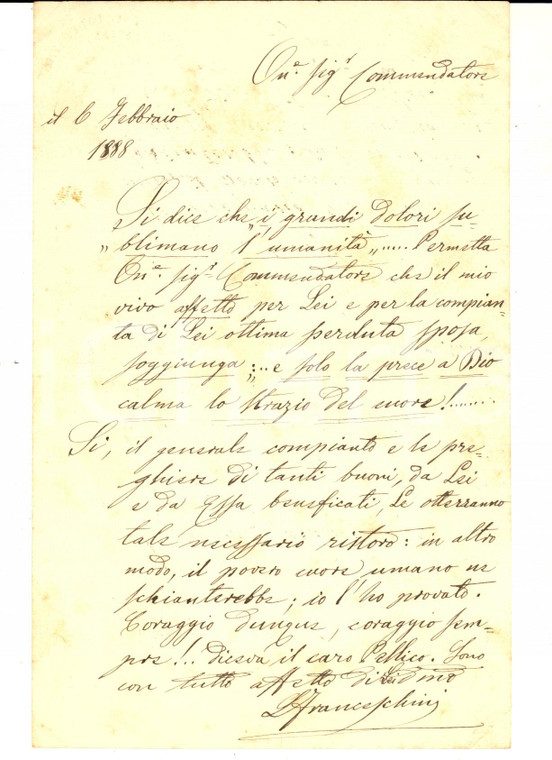 On.e Sig.r Commendatore
il 6 Febbraio
1888
Si dice che „i grandi dolori su-
„blimano l'umanità„..... Permetta
On.e Sig.r Commendatore che il mio
vivo affetto per Lei e per la compian-
ta di Lei ottima perduta sposa,
soggiunga: „... e solo la prece a Dio
calma lo strazio del cuore!........
Sì, il generale compianto e le pre-
ghiere di tanti buoni, da Lei
e da Essa beneficati, Le otterranno
tale necessario ristoro: in altro
modo, il povero cuore umano ne
schianterebbe; io l'ho provato.
Coraggio dunque, coraggio sem-
pre!... diceva il caro Pellico. Sono
con tutto affetto di Lei
Franceschini